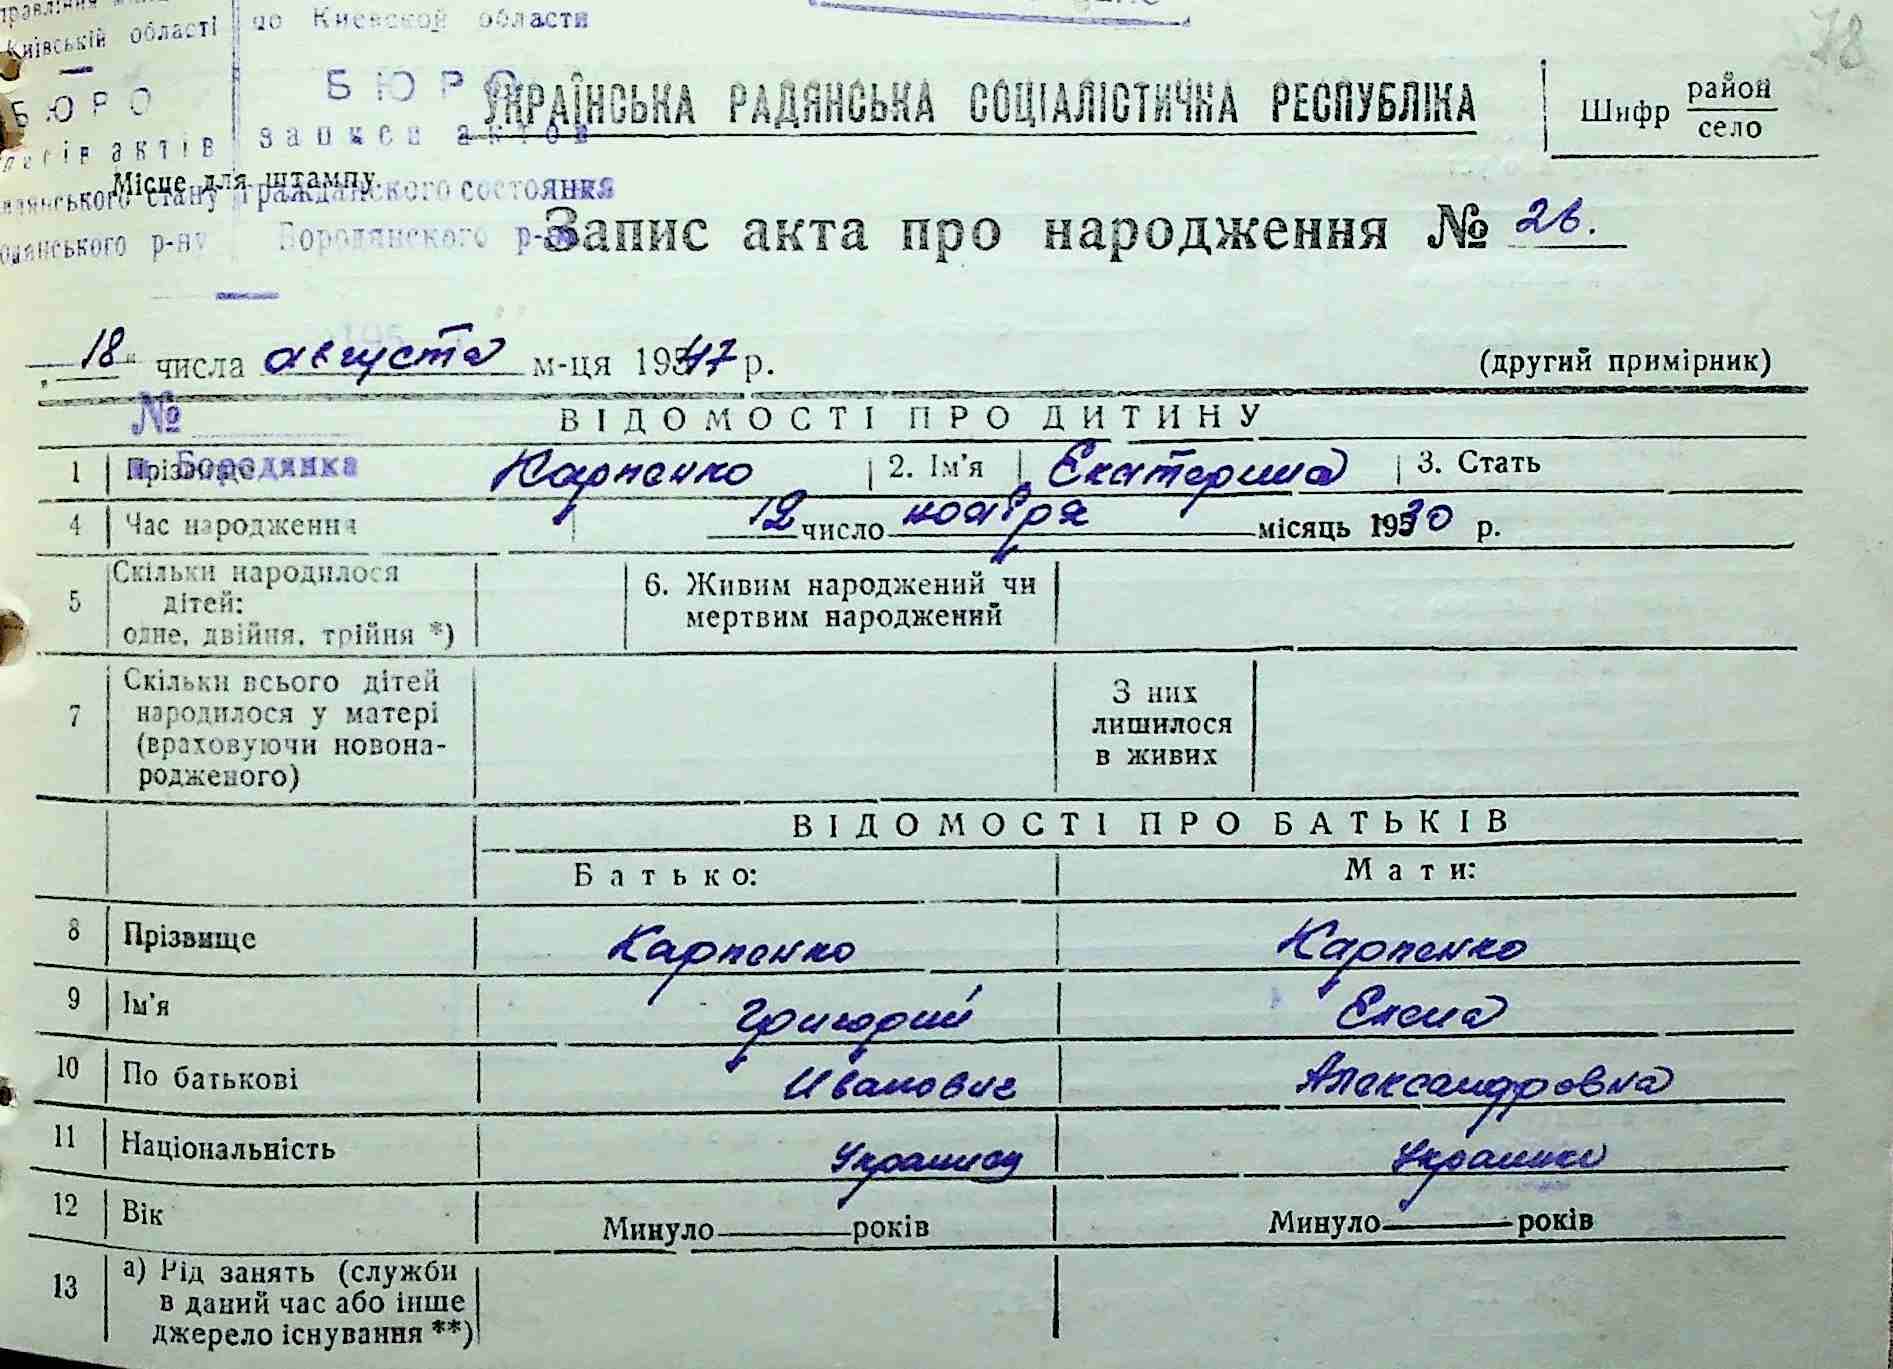 Київській області
по Киевской области
78
БЮРО
БЮРО
УКРАЇНСЬКА РАДЯНСЬКА СОЦІАЛІСТИЧНА РЕСПУБЛІКА
Шифр район
село
актів
записи актов
Місце для штампу
стану
гражданского состояния
р-ну
Бородянского р-на
Запис акта про народження № 26.
„18“ числа августа м-ця 195 47 р.
(другий примірник)
№
ВІДОМОСТІ ПРО ДИТИНУ
Бородянка
1 Прізвище Карпенко 2. Ім'я Екатерина 3. Стать
4 Час народження 12 число ноября місяць 1930 р.
5 Скільки народилося
дітей:
одне, двійня, трійня *)
6. Живим народжений чи
мертвим народжений
7 Скільки всього дітей
народилося у матері
(враховуючи новона-
родженого)
З них
лишилося
в живих
ВІДОМОСТІ ПРО БАТЬКІВ
Батько: Мати:
8 Прізвище Карпенко Карпенко
9 Ім'я Григорий Елена
10 По батькові Иванович Александровна
11 Національність Украинец Украинка
12 Вік Минуло років Минуло років
13 а) Рід занять (служби
в даний час або інше
джерело існування **)